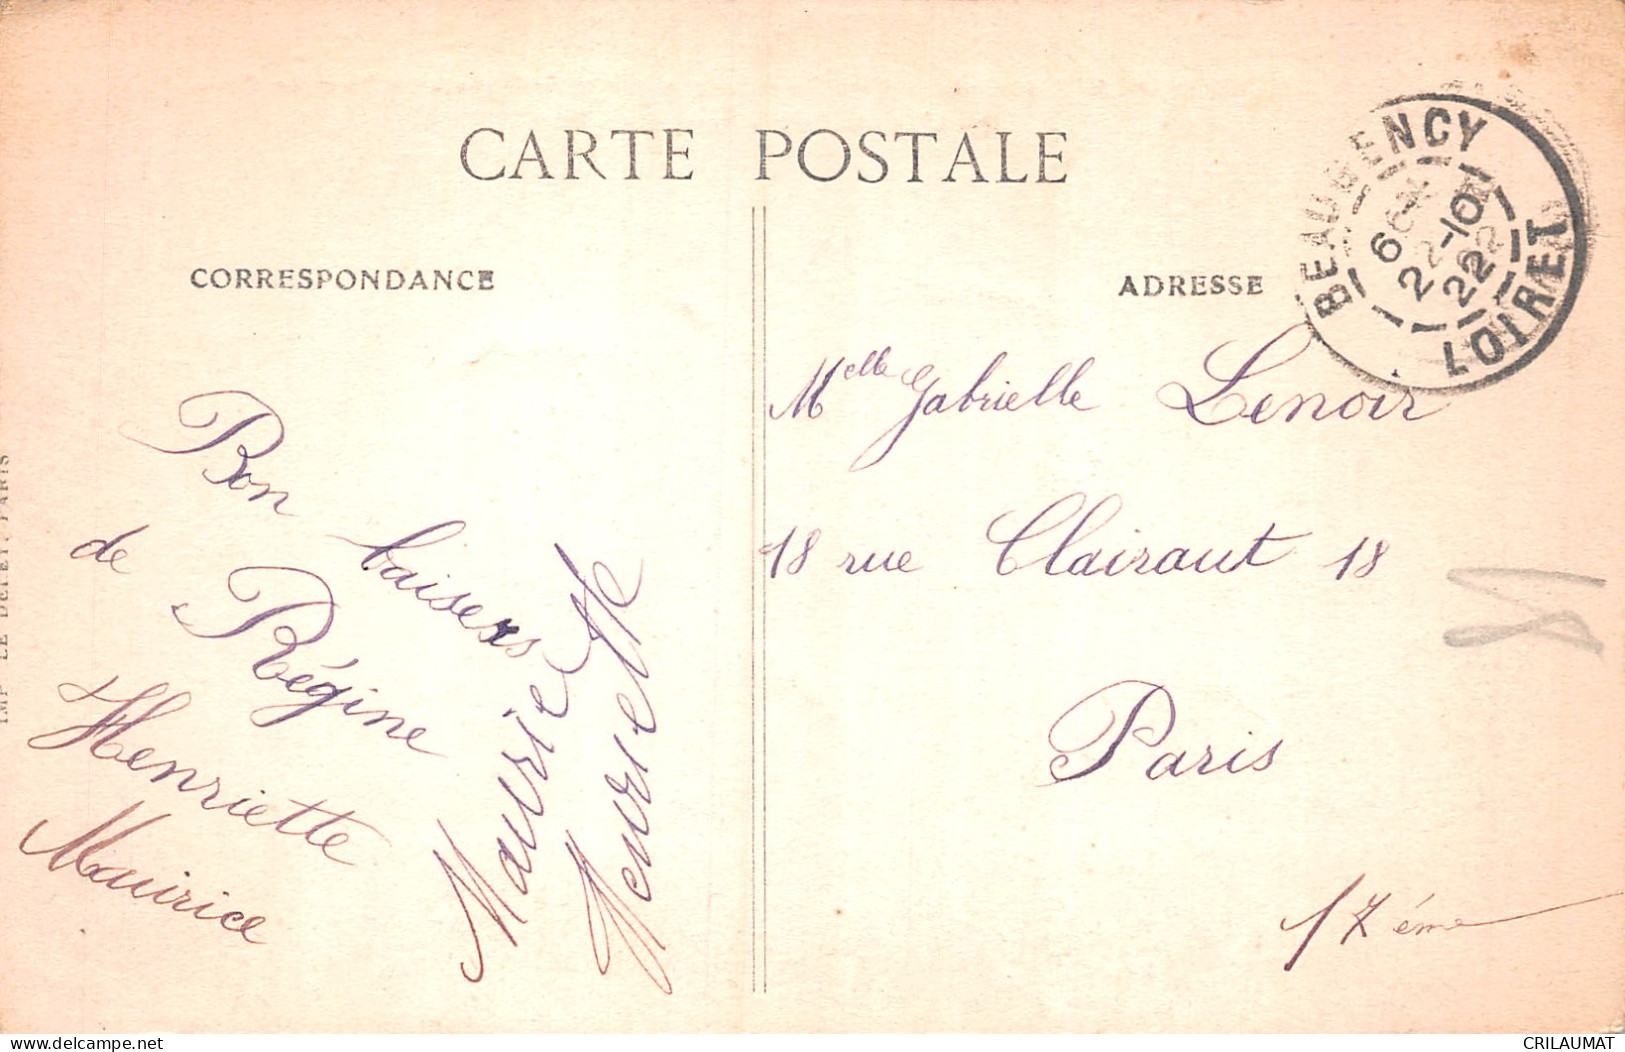 CARTE POSTALE
CORRESPONDANCE
ADRESSE
BEAUGENCY
6
2-10
22
LOIRET
Bon baisers
de Régine
Henriette
Mauirice
Maurice
Henriette
Melle Gabrielle Lenoir
18 rue Clairaut 18
Paris
17 éme
PARIS
delcampe.net
CRILAUMAT